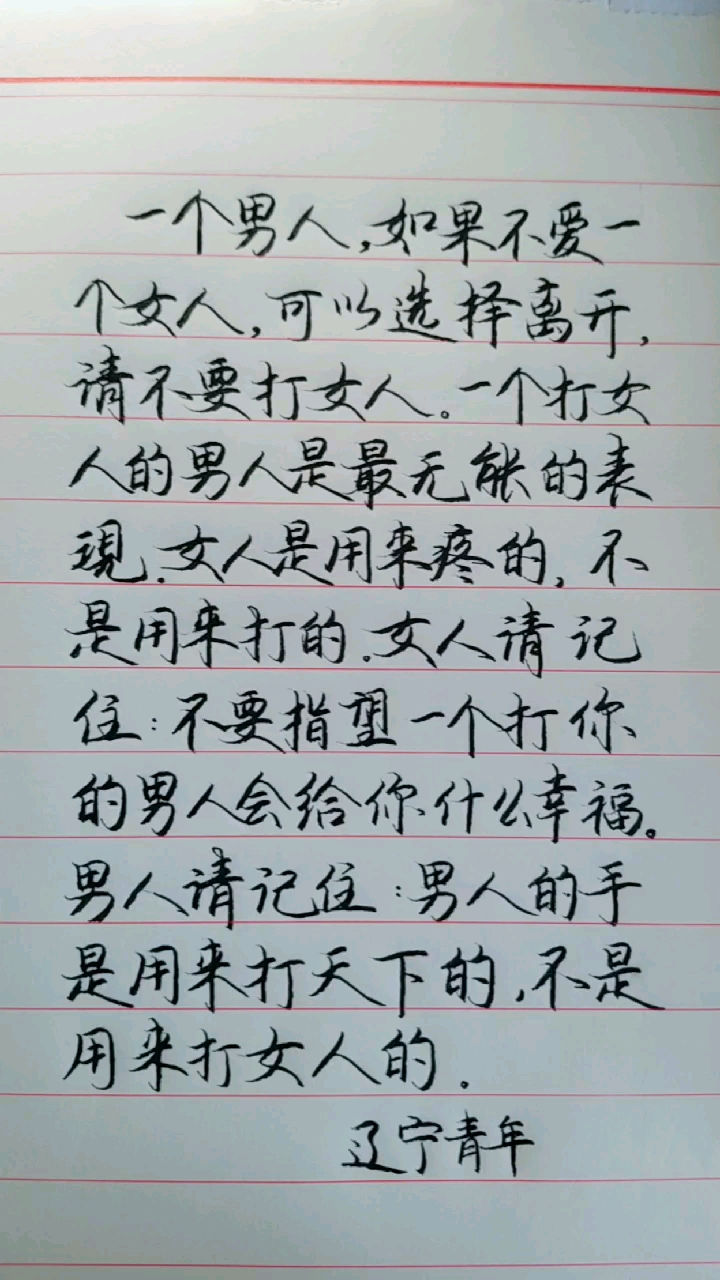 一个男人,如果不爱一
个女人,可以选择离开,
请不要打女人。一个打女
人的男人是最无能的表
现.女人是用来疼的,不
是用来打的.女人请记
住:不要指望一个打你
的男人会给你什么幸福。
男人请记住:男人的手
是用来打天下的,不是
用来打女人的.
辽宁青年